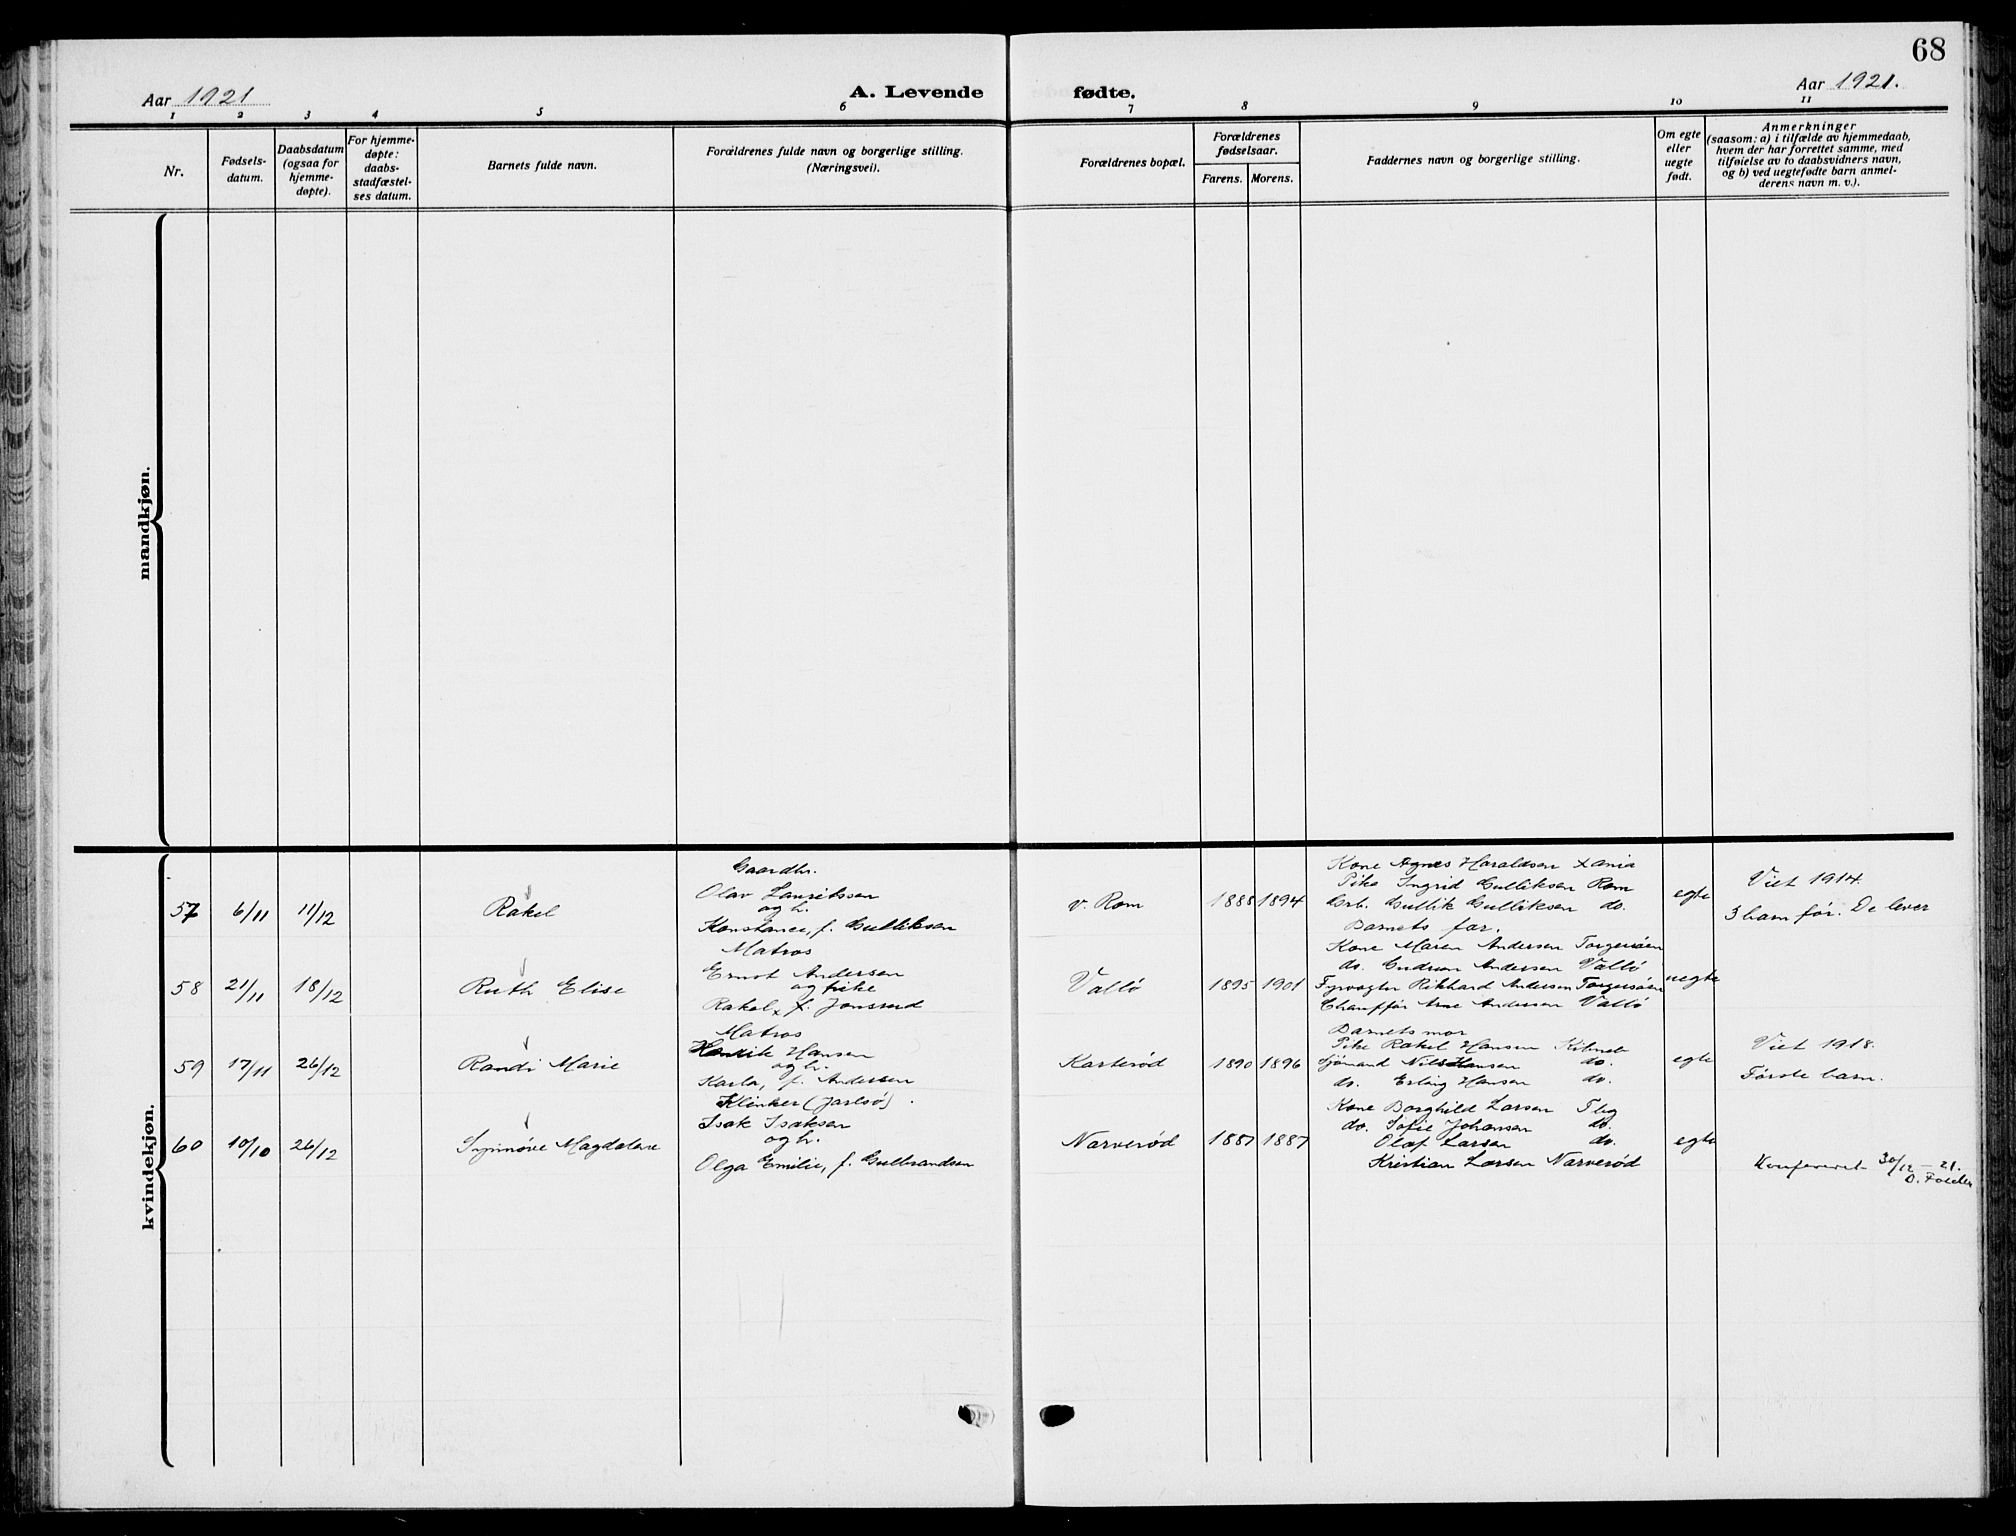 68
Aar 1921
A. Levende fødte.
Aar 1921.
1 2 3 4 5 6 7 8 9 10 11
Nr.
Fødsels-
datum.
Daabsdatum
(ogsaa for
hjemme-
døpte).
For hjemme-
døpte:
daabs-
stadfæstel-
ses datum.
Barnets fulde navn.
Forældrenes fulde navn og borgerlige stilling.
(Næringsvei).
Forældrenes bopæl.
Forældrenes
fødselsaar.
Farens. Morens.
Faddernes navn og borgerlige stilling.
Om egte
eller
uegte
født.
Anmerkninger
(saasom: a) i tilfælde av hjemmedaab,
hvem der har forrettet samme, med
tilføielse av to daabsvidners navn,
og b) ved uegtefødte barn anmel-
derens navn m. v.).
mandkjøn.
kvindekjøn.
57 6/11 11/12 Rakel
Gaardbr.
Olav Lauritssen
og h.
Konstance, f. Gulliksen
v. Rom 1888 1894
Kone Agnes Haraldsen Xania
Pike Ingrid Gulliksen Rom
Grb. Gullik Gulliksen do.
Barnets far.
egte
Viet 1914.
3 barn før. De lever
58 21/11 18/12 Ruth Elise
Matros
Ernst Andersen
og pike
Rakel x f. Jonsrud
Vallö 1895 1901
Kone Maren Andersen Torgersöen
do. Gudrun Andersen Vallö
Fyrvogter Rikhard Andersen Torgersöen
Chauffør Arne Andersen Vallö
uegte
59 17/11 26/12 Randi Marie
Matros
Henrik Hansen
og h.
Karla, f. Andersen
Karterød 1890 1896
Barnets mor
Pike Rakel Hansen
Sjömand Nils Hansen do.
do. Erling Hansen do.
egte
Viet 1918.
Første barn.
60 10/10 26/12 Synnöve Magdalene
Klinker (Jarlsö).
Isak Isaksen
og h.
Olga Emilie, f. Gulbrandsen
Narverød 1887 1887
Kone Borghild Larsen Tbg
do. Sofie Johansen do.
Olaf Larsen do.
Kristian Larsen Narverød
egte
Konfereret 30/12 – 21.
O.